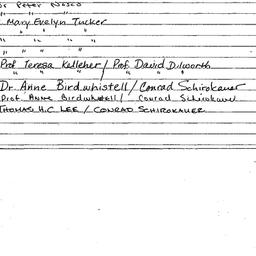 Dr Peter Nosco
" " "
Mary Evelyn Tucker
" " "
" " " "
" " " "
Prof Teresa Kelleher / Prof. David Dilworth
" " " " " "
Dr. Anne Birdwhistell / Conrad Schirokauer
Prof. Anne Birdwhistell / Conrad Schirokauer
THOMAS H.C. LEE / CONRAD SCHIROKAUER